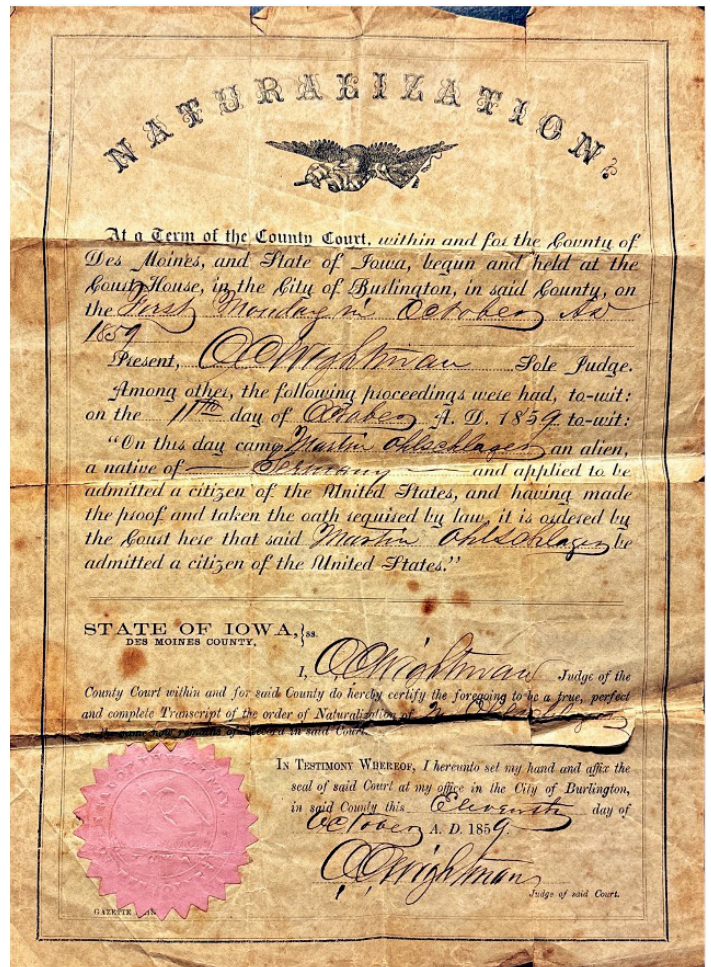 NATURALIZATION.
At a Term of the County Court, within and for the County of
Des Moines, and State of Iowa, begun and held at the
Court House, in the City of Burlington, in said County, on
the First Monday in October AD
1859
Present, CC Wightman Sole Judge.
Among other, the following proceedings were had, to-wit:
on the 11th day of October A. D. 1859. to-wit:
"On this day came Martin Ohlschlager an alien,
a native of Germany and applied to be
admitted a citizen of the United States, and having made
the proof and taken the oath required by law, it is ordered by
the Court here that said Martin Ohlschlager be
admitted a citizen of the United States."
STATE OF IOWA, } ss.
DES MOINES COUNTY,
I, CC Wightman Judge of the
County Court within and for said County do hereby certify the foregoing to be a true, perfect
and complete Transcript of the order of Naturalization of M. Ohlschlager
now remains of Record in said Court.
IN TESTIMONY WHEREOF, I hereunto set my hand and affix the
seal of said Court at my office in the City of Burlington,
in said County this Eleventh day of
October A. D. 1859.
CC Wightman
Judge of said Court.
GAZETTE